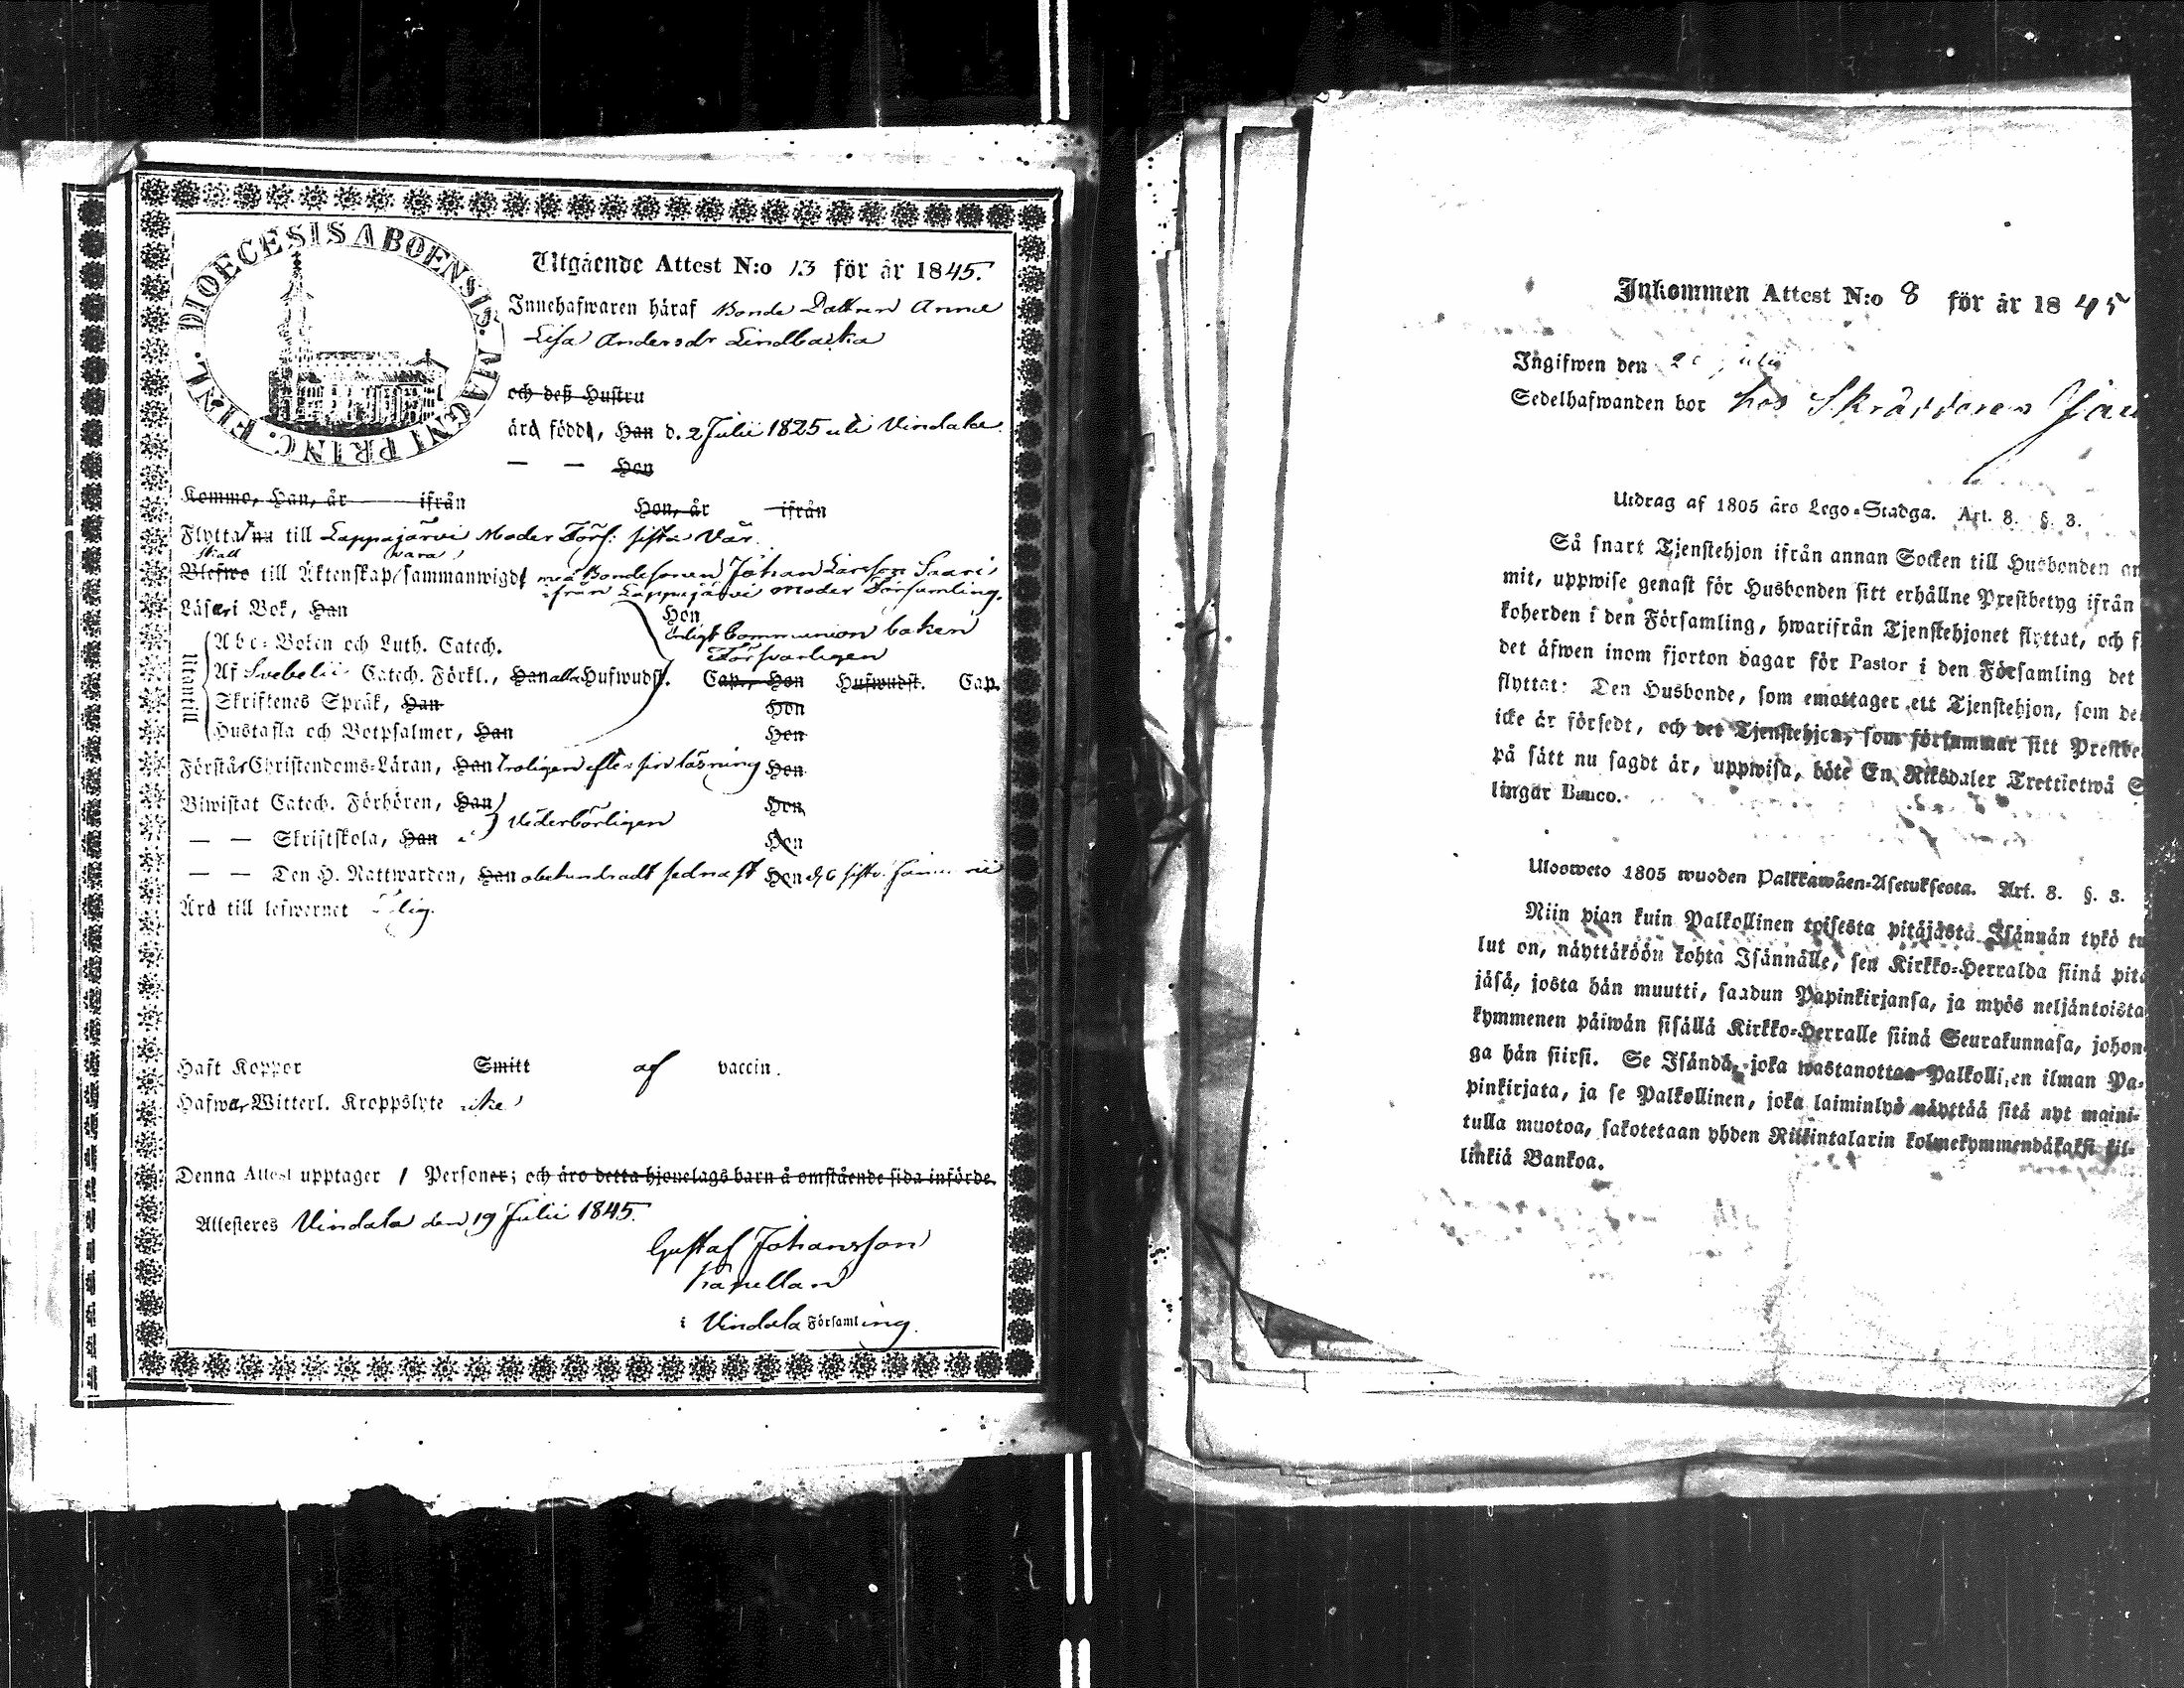 DIOECESIS ABOENSIS. MAGNI PRINC. FINL.
Utgående Attest N:o 13 för år 1845.
Innehafwaren häraf Bonde Dottren Anna
Lisa Andersdr Lindbacka
och deß Hustru
ärd född, Han d. 2 Julii 1825 uti Vindala
— — Hon
Kommo, Han, år ifrån Hon, år ifrån
Flyttat nu till Lappajärvi Moder Förs: sista Vår.
skall vara
Blefwo till Äktenskap sammanwigdt med Bondesonen Johan Larsson Saari
ifrån Lappajärvi Moder Församling.
Läser i Bok, Han Hon
Enligt Communion boken
Försvarligen
Utantill
Abc-Boken och Luth. Catech.
Af Svebelii Catech. Förkl., Han alla Hufwudst. Cap., Hon Hufwudst. Cap.
Skriftenes Språk, Han Hon
Hustafla och Botpsalmer, Han Hon
Förstår Christendoms-Läran, Han troligen efter sin läsning Hon
Biwistat Catech. Förhören, Han Hon
Vederbörligen
— — Skriftskola, Han Hon
— — Den H. Nattwarden, Han obehindradt sednast Hon d. 6 sistl.
Ärd till lefwernet
Haft Koppor Smitt af vaccin.
Hafwer Witterl. Kroppslyte icke
Denna Attest upptager 1 Personer; och äro detta hjonelags barn å omstående sida införde.
Attesteres Vindala den 19 Julii 1845.
Gustaf Johansson
Kapellan
i Vindala Församling.
Inkommen Attest N:o 8 för år 1845
Ingifwen den Julii
Sedelhafwanden bor hos Skräddaren
Utdrag af 1805 års Lego-Stadga. Art. 8. §. 3.
Så snart Tjenstehjon ifrån annan Socken till Husbonden an
mit, uppwise genast för Husbonden sitt erhållne Prestbetyg ifrån
koherden i den Församling, hwarifrån Tjenstehjonet flyttat, och f
det äfwen inom fjorton dagar för Pastor i den Församling det
flyttat: Den Husbonde, som emottager ett Tjenstehjon, som de
icke är försedt, och det Tjenstehjon, som försummar sitt Prestbe
på sätt nu sagdt är, uppwisa, böte En Riksdaler Trettiotwå S
lingar Banco.
Ulosweto 1805 wuoden Palkkawäen-Asetuksesta. Art. 8. §. 3.
Niin pian kuin Palkollinen toisesta pitäjästä Isännän tykö tu
lut on, näyttäköön kohta Isännälle, sen Kirkko-Herralda siinä pitä
jäsä, josta hän muutti, saadun Papinkirjansa, ja myös neljäntoista
kymmenen päiwän sisällä Kirkko-Herralle siinä Seurakunnasa, johon-
ga hän siirsi. Se Isändä, joka wastanottaa Palkollisen ilman Pa-
pinkirjata, ja se Palkollinen, joka laiminlyö näyttää sitä nyt maini-
tulla muotoa, sakotetaan yhden Riikintalarin kolmekymmendäkaksi kil-
linkiä Bankoa.